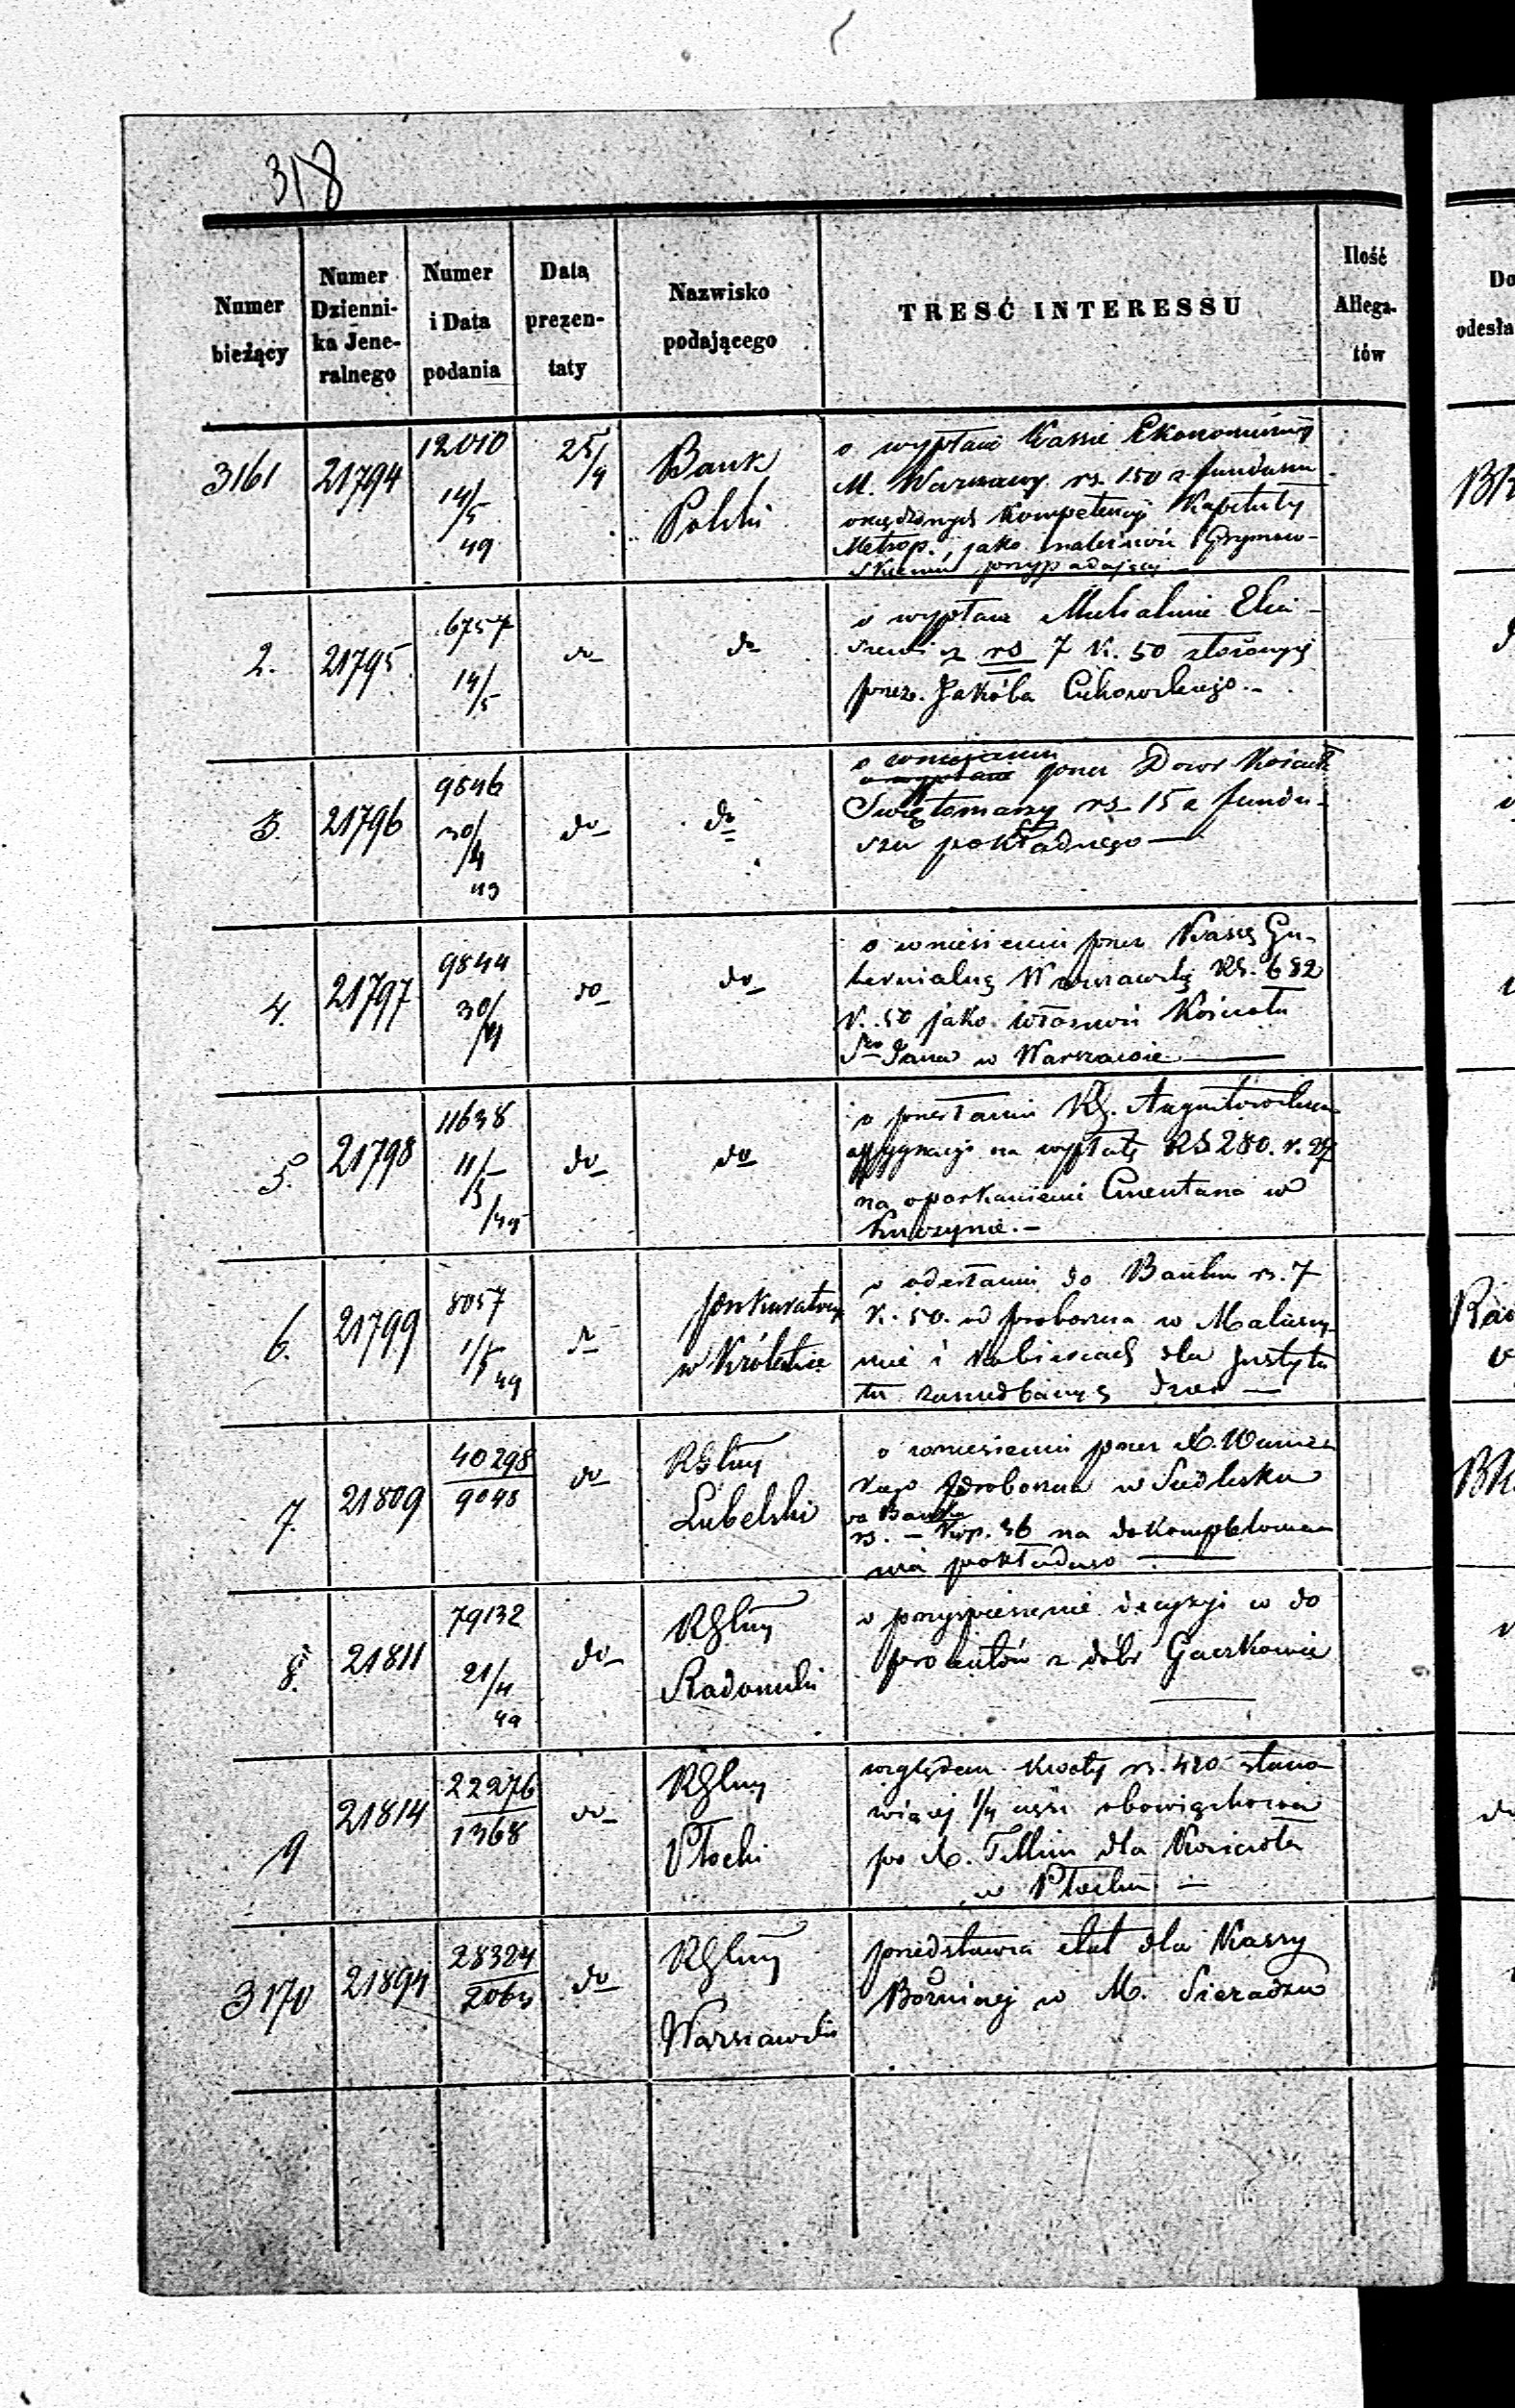 318
Numer bieżący
Numer Dzienni-ka Jene-ralnego
Numer i Data podania
Data prezen-taty
Nazwisko podającego
TRESĆ INTERESSU
Ilość Allega-tów
3161 21794 12010 14/5 49 25/4 Bank Polski
o wypłacie Kassie Ekonomicznej
M. Warszawy rs. 150 z funduszu
Kompetencyi Kapituły
Metrop., jako
przypadającej
2. 21795 6757 14/5 do do
o wypłacie Michalinie Elia-
szewicz rs 7 k. 50 złożonych
przez Jakóba Cukowskiego.-
3. 21796 9846 30/4 49 do do
o wniesieniu przez Dozór Kościoła
rs 15 z fundu-
szu pokładnego —
4. 21797 9844 30/4 do do
o wniesieniu przez Kassę Gu-
bernialną Warszawską RS. 682
k. 50 jako własność Kościoła
Sgo Jana w Warszawie —
5. 21798 11638 11/5/49 do do
o przesłaniu RG. Augustowskiemu
assygnacyi na wypłatę RS 280. k. 27
na oparkanienie Cmentarza w
6. 21799 8057 1/5 49 do
w Królestwie
o odesłaniu do Banku rs. 7
k. 50. od proboszcza w
i dla Instytu
tu zaniedbanych dzieci —
7. 21809 40298 9048 do RGlny Lubelski
o wniesieniu przez X.
proboszcza w Siedlisku
do Banku
rs. — kop. 36 na dokompletowa-
nia pokładnego —
8. 21811 79132 21/4 49 do RGlny Radomski
o przyspieszenie decyzyi w do
procentów z dóbr Gaczkowice
9 21814 22276 1368 do RGlny Płocki
względem kwoty rs. 420 stano-
wiącej 1/4 część obowiązkowa
po X. Tellim dla Kościoła
w Płocku —
3170 21894 28324 2064 do RGlny Warszawski
przedstawia etat dla Kassy
Bożniczej w M. Sieradzu
Do
odesła